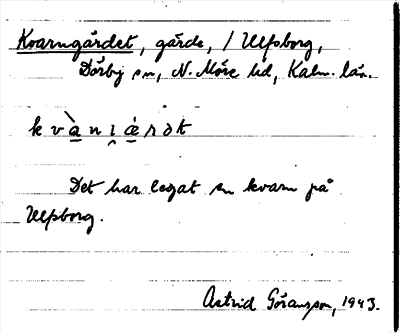 Kvarngärdet, gärde, / Ulfsborg,
Dörby sn, N. Möre hd, Kalm. län.
Det har legat en kvarn på
Ulfsborg.
Astrid Göransson, 1943.